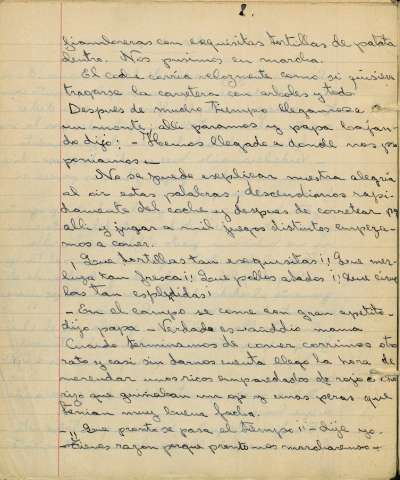 2.
fiambreras con exquisitas tortillas de patata
dentro. Nos pusimos en marcha.
El coche corría velozmente como si quisiera
tragarse la carretera con arboles y todo
Despues de mucho tiempo llegamos a
un monte; alli paramos y papa bajan-
do dijo: - Hemos llegado a donde nos pro
poniamos -
No se puede explicar nuestra alegría
al oir estas palabras; descendimos rapi-
damente del coche y despues de corretear por
alli y jugar a mil juegos distintos empeza-
mos a comer.
¡Que tortillas tan exquisitas!¡Que mer-
luza tan fresca!¡Que pollos asados!¡Que cirue
las tan esplendidas!
- En el campo se come con gran apetito -
dijo papa - Verdad es - añadio mama
Cuando terminamos de comer corrimos otro
rato y casi sin darnos cuenta llego la hora de
merendar unos ricos emparedados de
rizo que guiñaban un ojo y unas peras que
tenian muy buena facha.
- ¡¡Que pronto se pasa el tiempo!! - dije yo.
- Tienes razon porque pronto nos marcharemos -